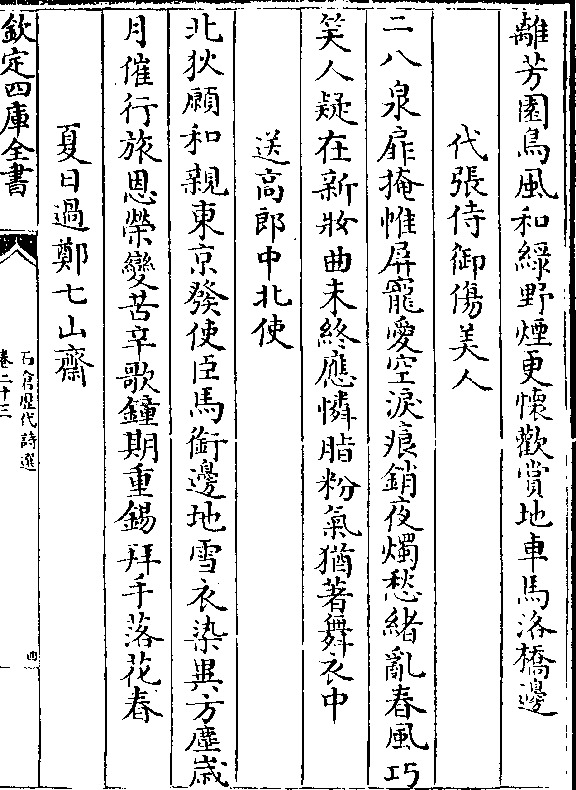 離芳園鳥風和綠野煙更懷歡賞地車馬洛橋邊
代張侍御傷美人
二八泉扉掩帷屏寵愛空淚痕銷夜燭愁緒亂春風巧
笑人疑在新妝曲未終應憐脂粉氣猶著舞衣中
送高郎中北使
北狄願和親東京發使臣馬銜邊地雪衣染異方塵歲
月催行旅恩榮變苦辛歌鐘期重錫拜手落花春
夏日過鄭七山齋
欽定四庫全書
石倉歷代詩選
卷二十三
四